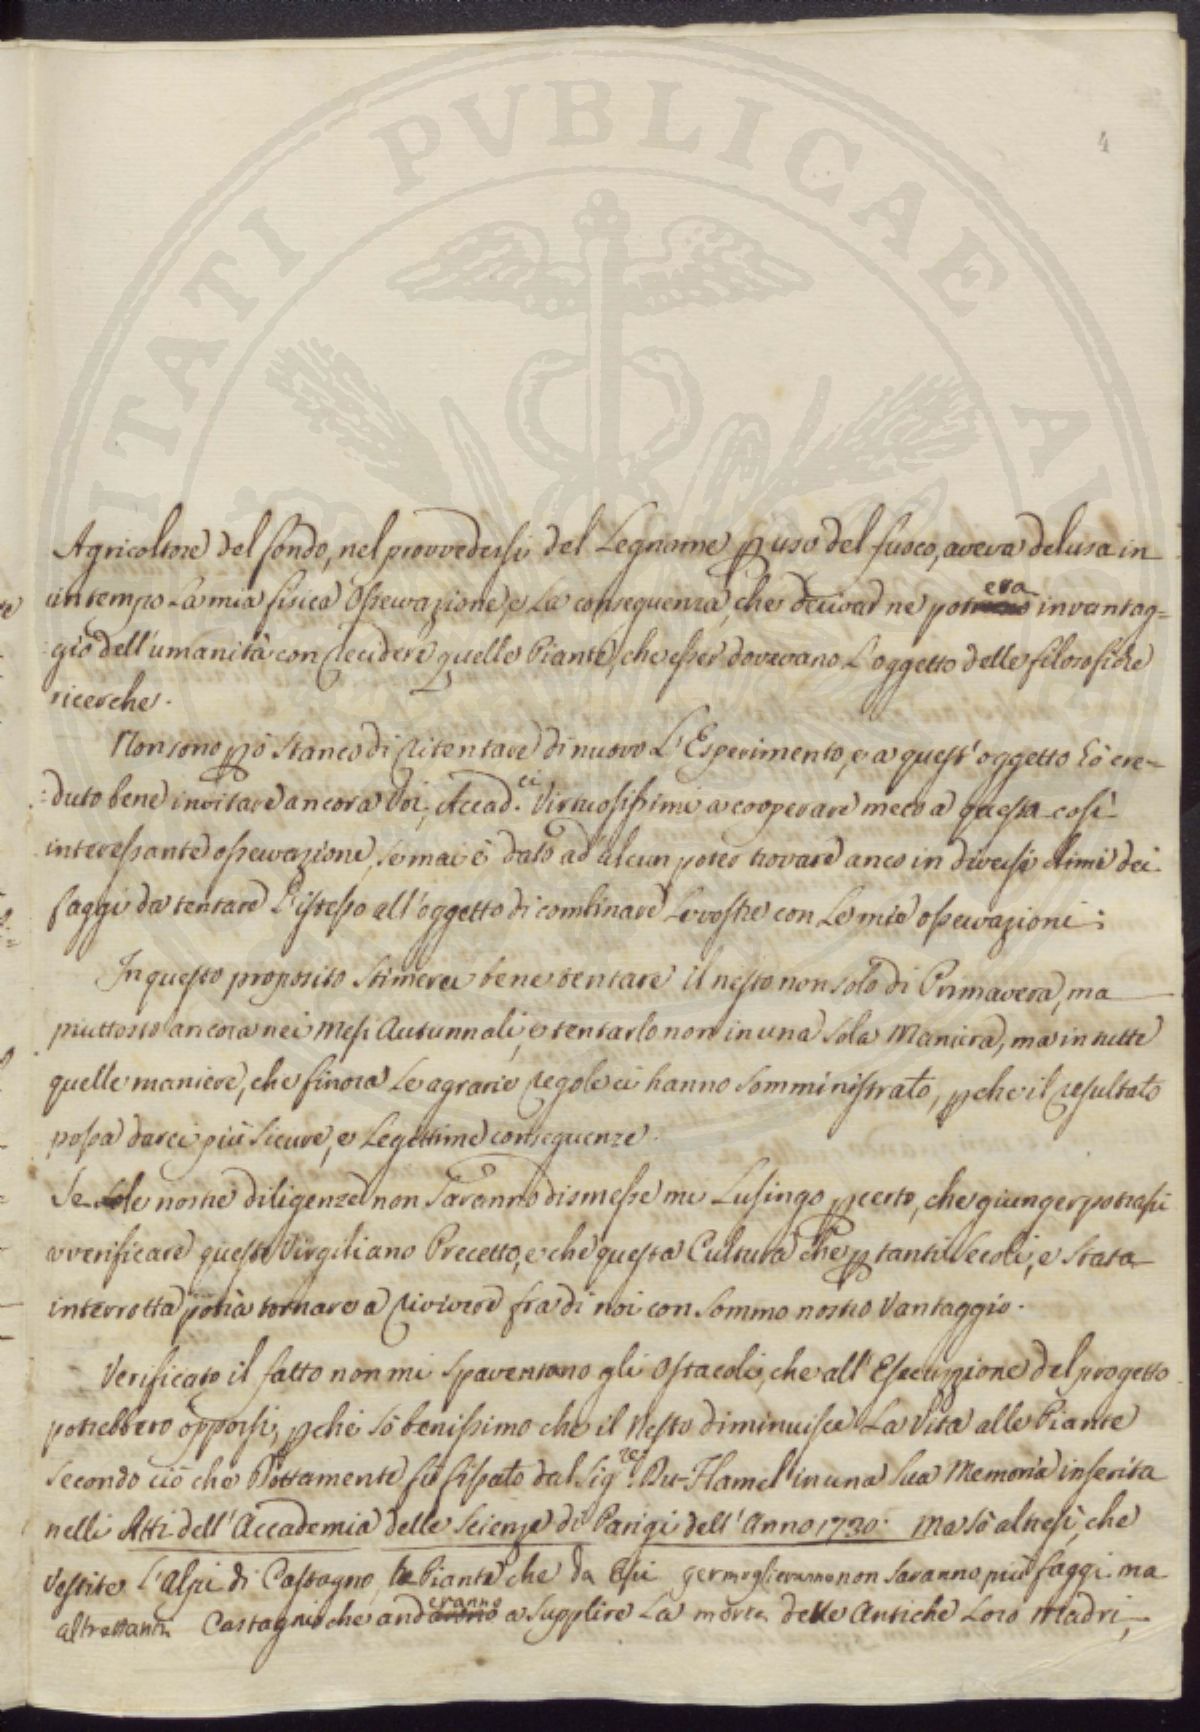 PROSPERITATI PVBLICAE AVGENDAE
4
Agricoltore del fondo, nel provvedersi del Legname p uso del fuoco, aveva delusa in
un tempo la mia fisica Osservazione, e la conseguenza, che derivar ne potera in vantag=
gio dell'umanità con recidere quelle Piante, che esser dovevano l'oggetto delle filosofiche
ricerche.
Non sono pò stanco di ritentare di nuovo l'Esperimento, e a quest'oggetto hò cre=
:duto bene invitare ancora Voi, Accad.ci Virtuosissimi a cooperare meco a questa così
interessante osservazione, se mai è dato ad alcun poter trovare anco in diversi climi dei
faggi da tentare l'istesso all'oggetto di combinare le vostre con le mie osservazioni:
In questo proposito stimerei bene tentare il nesto non solo di Primavera, ma
piuttosto ancora nei Mesi Autunnali, e tentarlo non in una sola Maniera, ma in tutte
quelle maniere, che finora le agrarie regole ci hanno somministrato, pche il resultato
possa darci più sicure, e legittime conseguenze.
Se le nostre diligenze non saranno dismesse mi lusingo p certo, che giunger potrassi
a verificare questo Virgiliano Precetto, e che questa Cultura che p tanti secoli, e stata
interrotta potrà tornare a rivivere fra di noi con sommo nostro Vantaggio.
Verificato il fatto non mi spaventano gli Ostacoli, che all'Esecuzzione del progetto
potrebbero opporsi, pchè sò benissimo che il Nesto diminuisce la Vita alle Piante
secondo ciò che Dottamente fù fissato dal Sig.re Du-Hamel in una sua Memoria inserita
nelli Atti dell'Accademia delle Scienze di Parigi dell'Anno 1730. Ma sò altresì, che
Vestite l'alpi di Castagno, le Piante che da essi germoglieranno non saranno più faggi ma
altrettanti Castagni che anderanno a supplire la morte delle Antiche loro Madri,